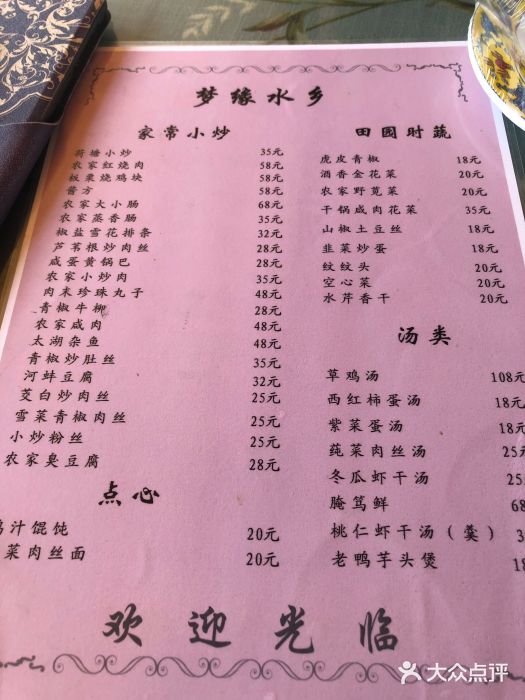 梦缘水乡
家常小炒
荷塘小炒 35元
农家红烧肉 58元
板栗烧鸡块 58元
酱方 58元
农家大小肠 68元
农家蒸香肠 35元
椒盐雪花排条 32元
芦苇根炒肉丝 28元
咸蛋黄锅巴 28元
农家小炒肉 35元
肉末珍珠丸子 48元
青椒牛柳 28元
农家咸肉 48元
太湖杂鱼 48元
青椒炒肚丝 35元
河蚌豆腐 32元
茭白炒肉丝 25元
雪菜青椒肉丝 25元
小炒粉丝 25元
农家臭豆腐 28元
点心
鸡汁馄饨 20元
菜肉丝面 20元
田园时蔬
虎皮青椒 18元
酒香金花菜 20元
农家野苋菜 20元
干锅咸肉花菜 35元
山椒土豆丝 18元
韭菜炒蛋 18元
纹纹头 20元
空心菜 20元
水芹香干 20元
汤类
草鸡汤 108元
西红柿蛋汤 18元
紫菜蛋汤 18元
莼菜肉丝汤 25元
冬瓜虾干汤 25元
腌笃鲜 68
桃仁虾干汤（羹） 3
老鸭芋头煲 18
欢迎光临
大众点评